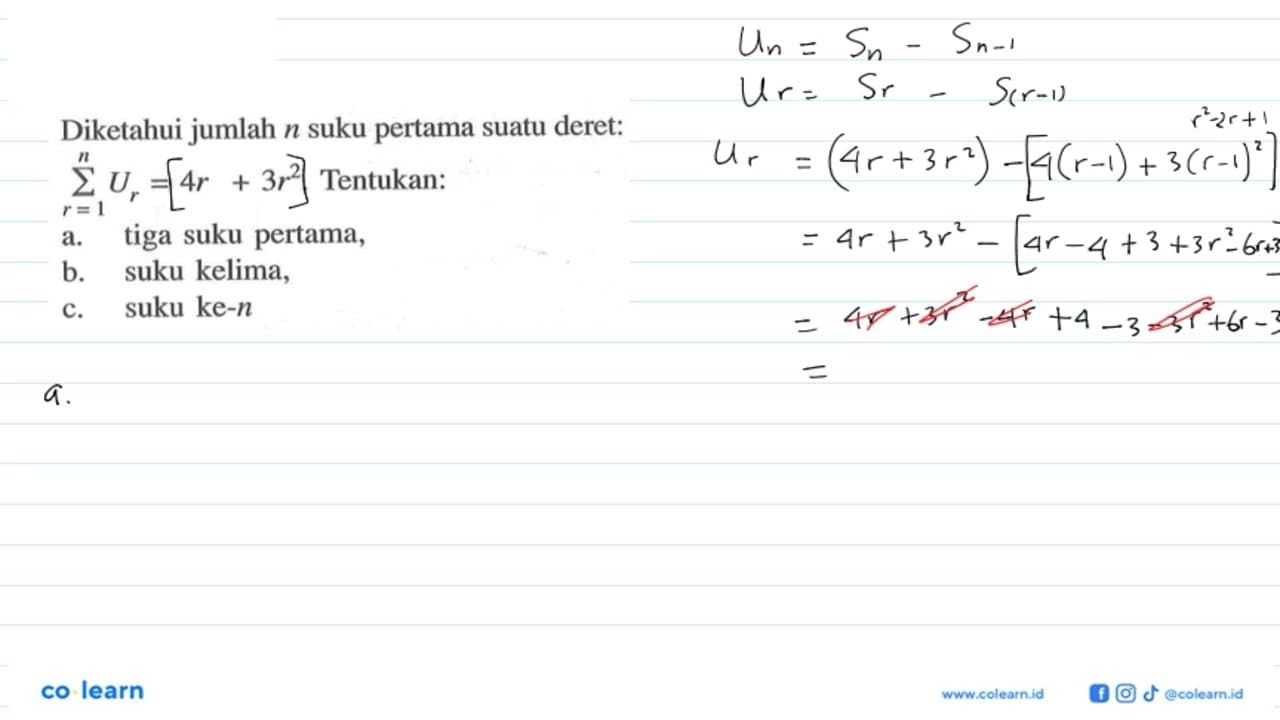 Diketahui jumlah n suku pertama suatu deret:
n
Σ U_r = [4r + 3r²] Tentukan:
r = 1
a. tiga suku pertama,
b. suku kelima,
c. suku ke-n
a.
Un = Sn - Sn-1
Ur = Sr - S(r-1)
r²-2r+1
Ur = (4r + 3r²) - [4(r-1) + 3(r-1)²]
= 4r + 3r² - [4r - 4 + 3 + 3r² - 6r+3
= 4r + 3r² - 4r + 4 - 3 - 3r² + 6r - 3
=
co learn
www.colearn.id
@colearn.id